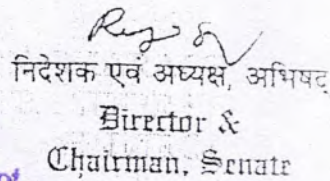 निदेशक एवं अध्यक्ष, अभिषद्
Director &
Chairman, Senate
of